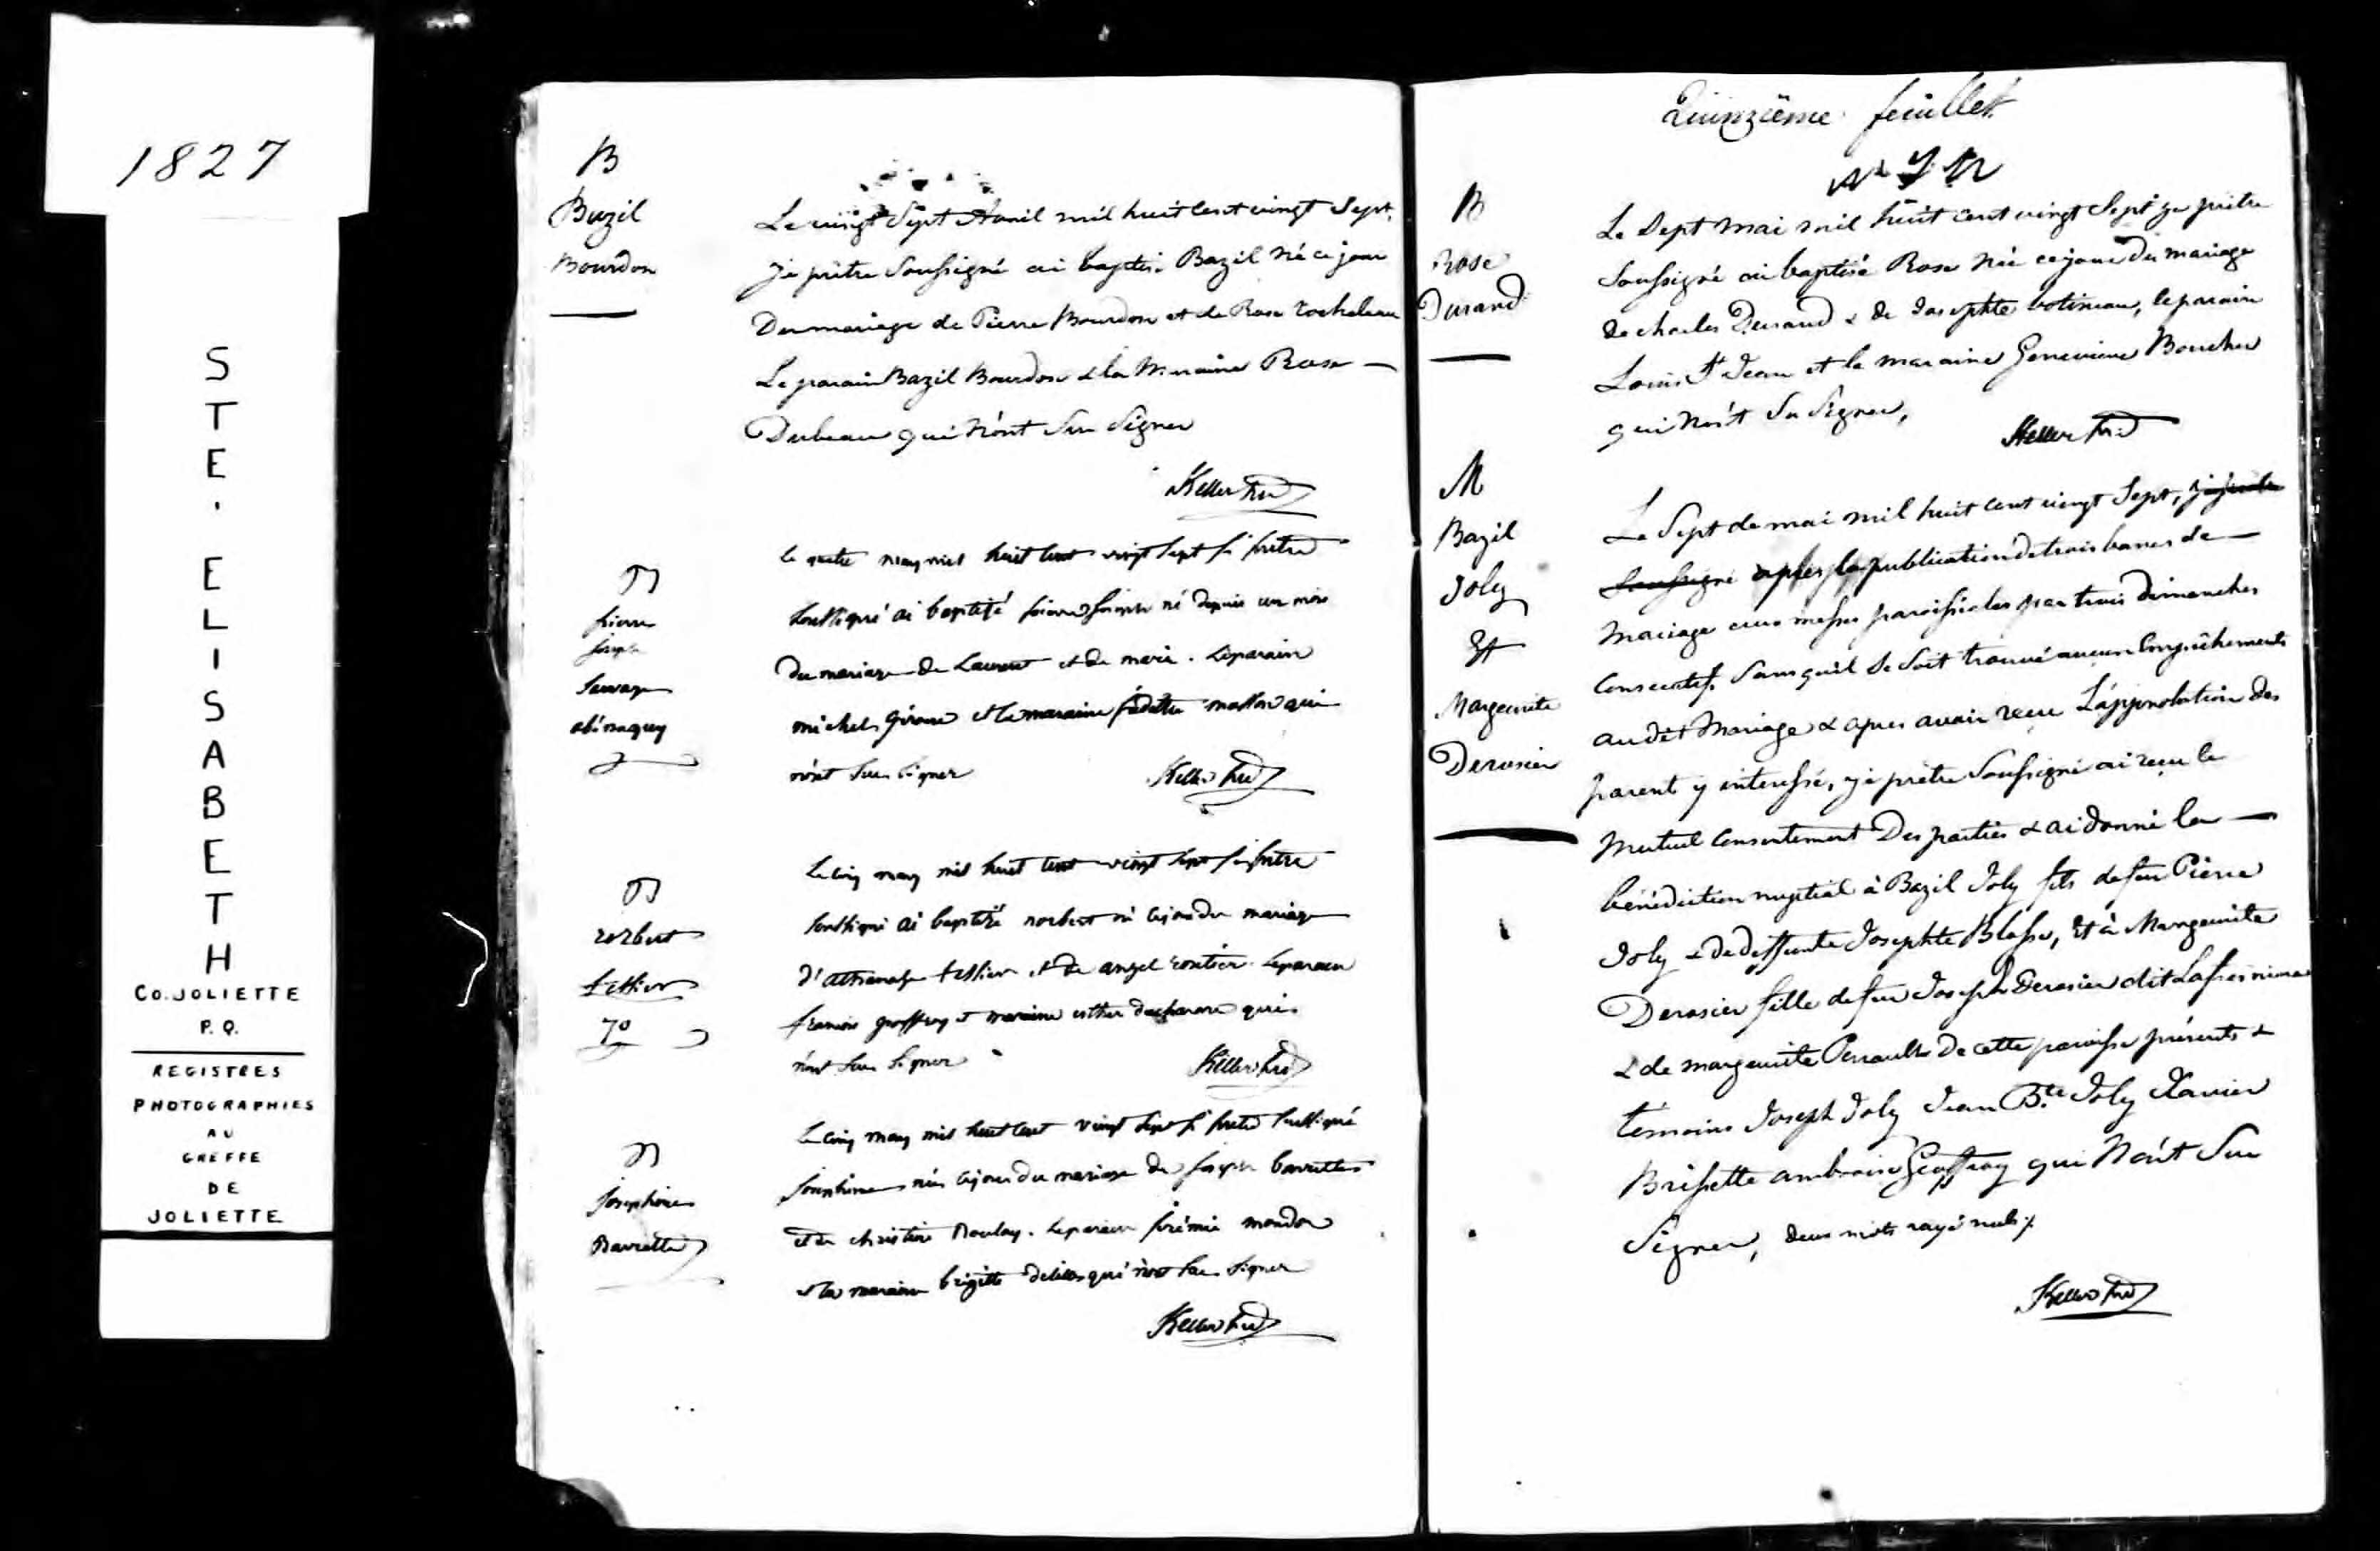 1827
STE. ELISABETH
Co. JOLIETTE
P. Q.
REGISTRES
PHOTOGRAPHIES
AU
GREFFE
DE
JOLIETTE
B
Bazil
Bourdon
Le vingt Sept Avril mil huit cent vingt Sept,
je prêtre Soussigné ai baptisé Bazil né ce jour
Du mariage de Pierre Bourdon et de Rose rocheleau
Le parain Bazil Bourdon & la Maraine Rose
Dubeau qui n'ont Su Signer
Keller ptre
B
pierre
joseph
Sauvage
abénaquy
le quatre may mil huit cent vingt Sept je prêtre
Soussigné ai baptisé pierre joseph né depuis un mois
du mariage de Laurent et de marie. Leparain
michel et la maraine qui
n'ont Su Signer
Keller ptre
B
norbert
tessier
Le cinq may mil huit cent vingt Sept je prêtre
Soussigné ai baptisé norbert né ce jour du mariage
d'athanase tessier et de angel Leparain
francois geoffroy et maraine esther qui
n'ont Su Signer
Keller ptre
B
josephine
Barrette
Le cinq may mil huit cent vingt Sept je prêtre Soussigné
josephine née ce jour du mariage de joseph barrette
et de christine Boulay. Leparain jérémie mondor
et la maraine brigitte qui n'ont Su Signer
Keller ptre
Quinzième feuillet
B
Rose
Durand
Le Sept mai mil huit cent vingt Sept je prêtre
Soussigné ai baptisé Rose née ce jour Du mariage
de charles Durand & de Josephte botineau, le parain
Louis St Jean et la maraine Genevieve Boucher
qui n'ont Su Signer,
Keller ptre
M
Bazil
Joly
Et
Marguerite
Derosier
Le Sept de mai mil huit cent vingt Sept, je prêtre
Soussigné après la publication de trois bancs de
Mariage aux messes paroissiales par trois dimanches
Consecutif. Sans quil Se Soit trouvé aucun Empêchements
au dit Mariage & apres avoir reçu L'approbation des
parent y interessé, je prêtre Soussigné ai reçu le
Mutuel Consentement Des parties & ai donné la
bénédiction nuptial à Bazil Joly fils defeu Pierre
Joly & de deffunte Josephte Blasse, Et à Marguerite
Derosier fille defeu Joseph Derosier dit Lafreniere
& de marguerite Perrault De cette paroisse présents &
témoins Joseph Joly Jean Bte Joly Xavier
Brissette ambroise Geoffroy qui N'ont Su
Signer, deux mots rayé nuls
Keller ptre